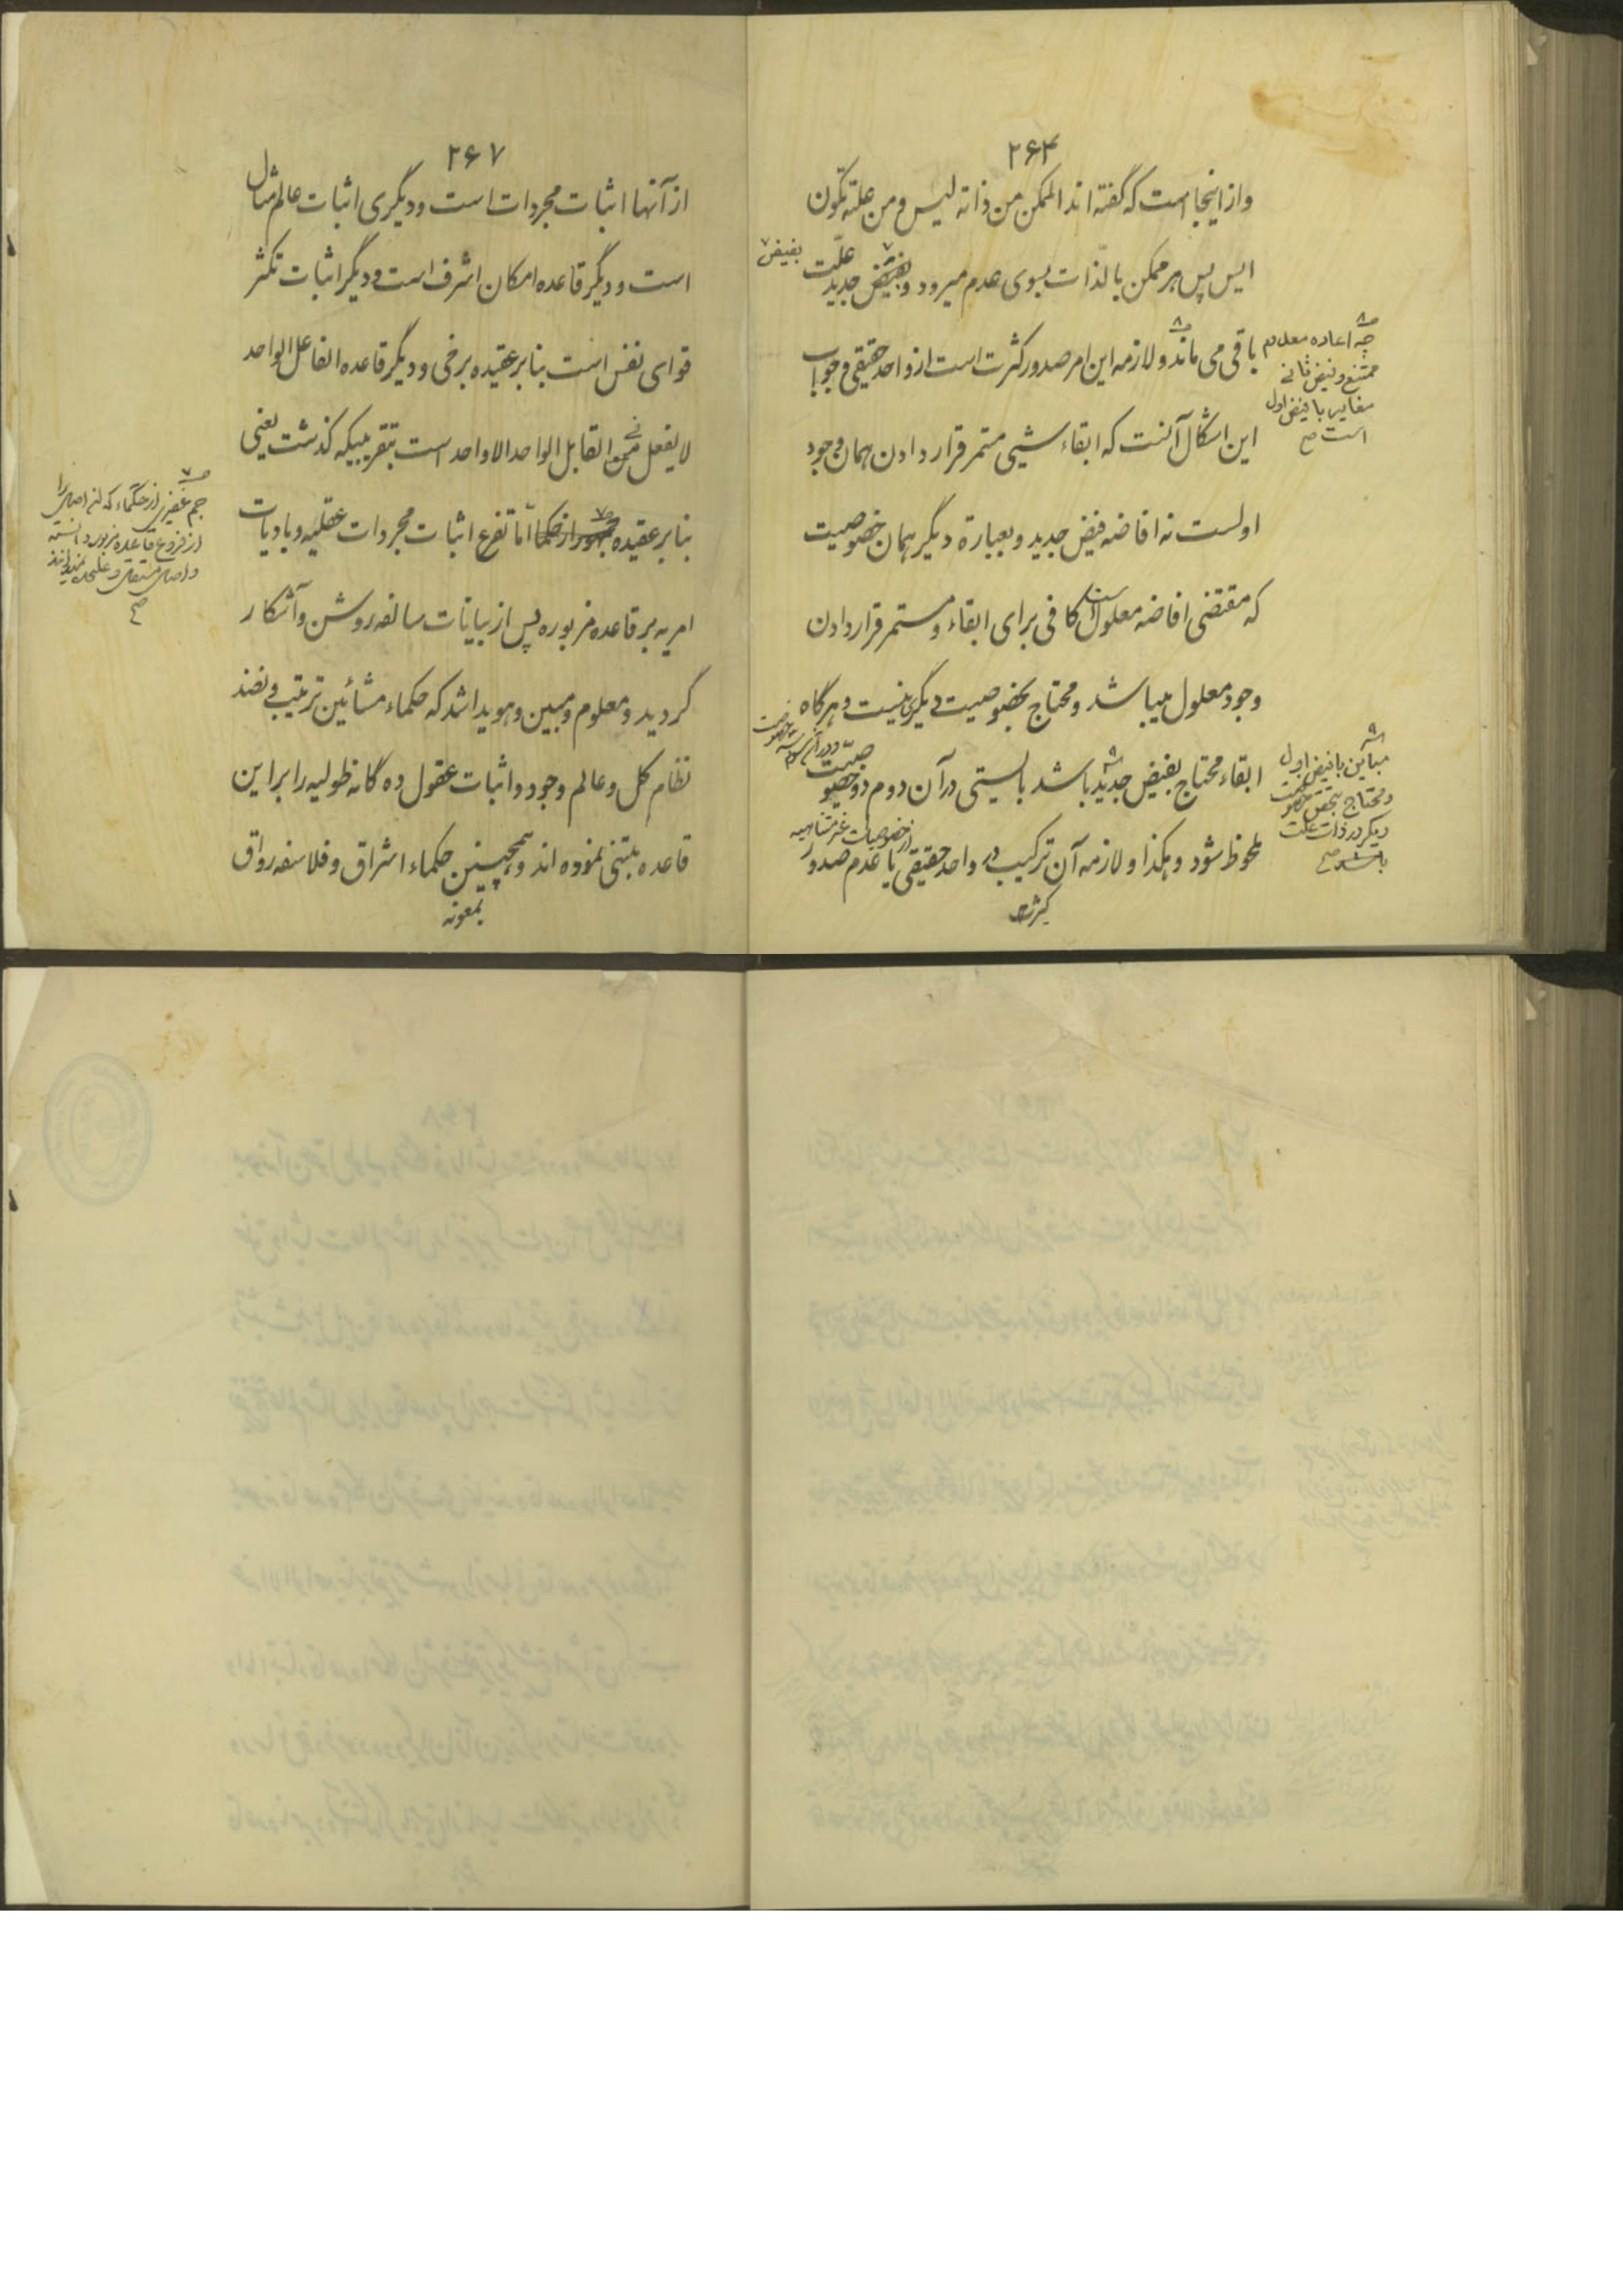 ۲۶۴
و از اینجا است که گفته اند الممکن من ذاته لیس و من علته تکون
ایس پس هر ممکن بالذات بسوی عدم میرود و بفیض جدید علّت
بفیض
باقی می ماند و لازمه این امر صدور کثرت است از واحد حقیقی و جواب
چه اعاده معدوم
ممتنع و فیض ثانی
مغایر با فیض اول
است صح
این اشکال آنست که ابقاء شیئی مستمر قرار دادن همان وجود
اولست نه افاضه فیض جدید و بعبارة دیگر همان خصوصیت
که مقتضی افاضه معلول است کافی برای ابقاء و مستمر قرار دادن
وجود معلول میباشد و محتاج بخصوصیت دیگری نیست و هرگاه
ابقاء محتاج بفیض جدید باشد بایستی در آن دوم دو خصوصیّت
و در آن سوم سه خصوصیت
مباین با فیض اول
و محتاج بخصوصیت
دیگر در ذات علت
باشد صح
ملحوظ شود و هکذا و لازمه آن ترکیب در واحد حقیقی یا عدم صدور
از خصوصیات غیر متناهیه
کثرت
۲۶۷
از آنها اثبات مجردات است و دیگری اثبات عالم مثال
است و دیگر قاعده امکان اشرف است و دیگر اثبات تکثر
قوای نفس است بنابر عقیده برخی و دیگر قاعده الفاعل الواحد
لا یفعل فی القابل الواحد الا واحد است بتقریبیکه گذشت یعنی
بنابر عقیده جمهور از حکما امّا تفرع اثبات مجردات عقلیه و بادیات
جم غفیری از حکماء که این اصل را
از فروع قاعده مزبوره دانسته
و اصل مستقل و علیحده نمیدانند
صح
امریه بر قاعده مزبوره پس از بیانات سالفه روشن و آشکار
گردید و معلوم و مبین و هویدا شد که حکماء مشائین ترتیب و نضد
نظام کل و عالم وجود و اثبات عقول ده گانه طولیه را بر این
قاعده مبتنی نموده اند و همچنین حکماء اشراق و فلاسفه رواق
بمعونه